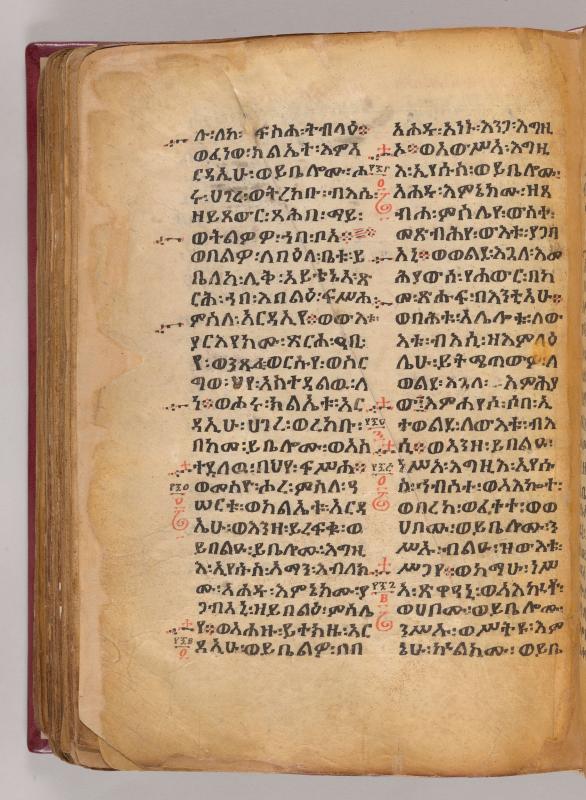 ሉ፡ለከ፡ ፍስሐ፡ትብላዕ፨
ወፈነወ፡ክልኤተ፡እምአ
ርዳኢሁ፡ወይቤሎሙ፡ሖ
ሩ፡ሀገረ፡ወትረክቡ፡ብእሴ፡
ዘይጸውር፡ጻሕበ፡ማይ፡
ወትልውዎ፡ኀበ፡ቦአ፨
ወበልዎ፡ለበዕለ፡ቤቱ፡ይ
ቤለከ፡ሊቅ፡አይቴኑእ፡ጽ
ርሕ፡ኀበ፡እበልዕ፡ፍሥሐ፡
ምስለ፡አርዳኢየ፨ወውእቱ፡
ያርእየክሙ፡ጽርሐ፡ዓቢ
የ፡ወንጹፈ፡ወርሱየ፡ወስር
ግወ፡ህየ፡አስተዳልዉ፡ለ
ነ፨ወሖሩ፡ክልኤቱ፡አር
ዳኢሁ፡ሀገረ፡ወረከቡ፡
በከመ፡ይቤሎሙ፡ወአስ
ተዳለዉ፡በህየ፡ፍሥሐ፨
ወመስየ፡ሖረ፡ምስለ፡ዓ
ሠርቱ፡ወክልኤቱ፡አርዳ
ኢሁ፡ወእንዘ፡ይረፍቁ፡ወ
ይበልዑ፡ይቤሎሙ፡እግዚ
እ፡ኢየሱስ፡አማን፡እብለክ
ሙ፡አሐዱ፡እምኔክሙ፡ያ
ገብአኒ፡ዘይበልዕ፡ምስሌ
የ፨ወአሐዙ፡ይተክዙ፡አር
ዳኢሁ፡ወይቤልዎ፡በበ
አሐዱ፡አነኑ፡እንጋ፡እግዚ
ኦ፨ወአውሥአ፡እግዚ
እ፡ኢየሱስ፡ወይቤሎሙ፡
አሐዱ፡እምኔክሙ፡ዘጸ
ብሐ፡ምስሌየ፡ውስተ፡
መጽብሕየ፡ውእቱ፡ያገብ
አኒ፨ወወልደ፡እጓለ፡እመ
ሕያውሰ፡የሐውር፡በከ
መ፡ጽሑፍ፡በእንቲአሁ፨
ወባሕቱ፡አሌሎቱ፡ለው
እቱ፡ብእሲ፡ዘእምዕ
ሌሁ፡ይትሜጠውዎ፡ለ
ወልደ፡እጓለ፡እምሕያ
ው፨እምኀየሶ፡ሶበ፡ኢ
ተወልደ፡ለውእቱ፡ብእ
ሲ፨ወእንዘ፡ይበልዑ፡
ነሥአ፡እግዚእ፡ኢየሱ
ስ፡ኅብስተ፡ወአእኰተ፡
ወባረከ፡ወፈተተ፡ወወ
ሀቦሙ፡ወይቤሎሙ፡ን
ሥኡ፡ብልዑ፡ዝውእቱ፡
ሥጋየ፨ወከማሁ፡ነሥ
አ፡ጽዋዓኒ፡ወአእኰተ፡
ወሀቦሙ፡ወይቤሎሙ፡
ንሥኡ፡ወሥትዩ፡እም
ኔሁ፡ኵልክሙ፡ወይቤ